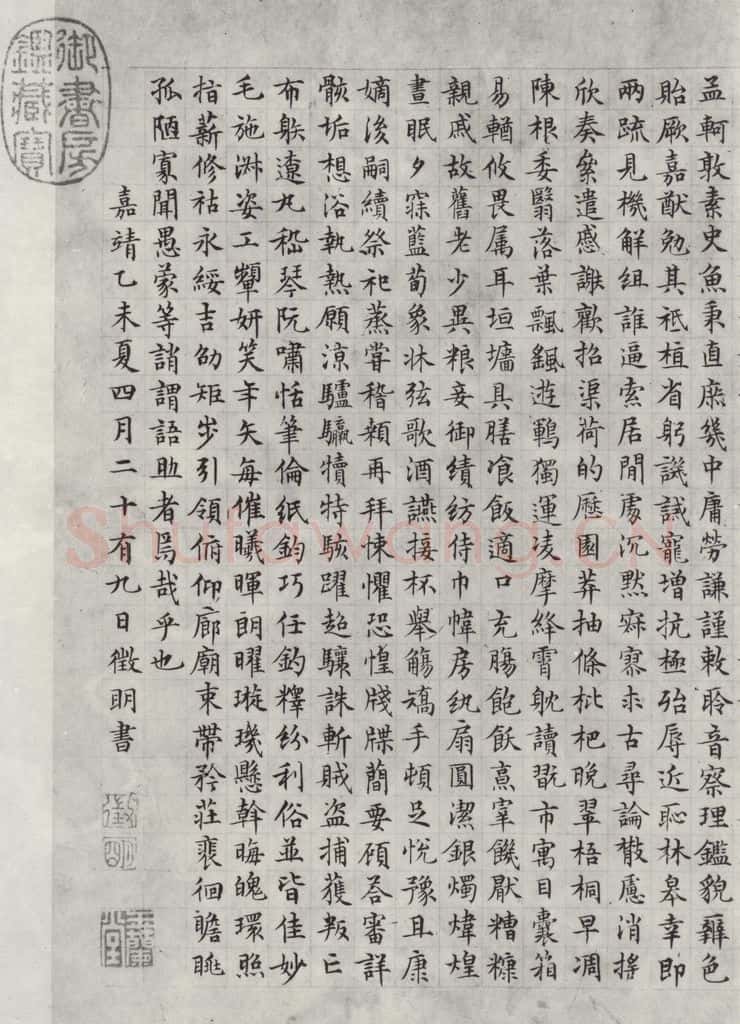 孟軻敦素史魚秉直庶幾中庸勞謙謹敕聆音察理鑑貌辨色
貽厥嘉猷勉其祗植省躬譏誡寵增抗極殆辱近恥林皋幸即
兩疏見機解組誰逼索居閒處沉默寂寥求古尋論散慮消搖
欣奏累遣慼謝歡招渠荷的歷園莽抽條枇杷晚翠梧桐早凋
陳根委翳落葉飄颻遊鵾獨運凌摩絳霄耽讀翫市寓目囊箱
易輶攸畏属耳垣墻具膳飡飯適口充腸飽飫烹宰饑厭糟糠
親戚故舊老少異粮妾御績紡侍巾帷房紈扇圓潔銀燭煒煌
晝眠夕寐藍荀象牀弦歌酒讌接杯舉觴矯手頓足悅豫且康
嫡後嗣續祭祀蒸嘗稽顙再拜悚懼恐惶牋牒簡要顧答審詳
骸垢想浴執熱願涼驢騾犢特駭躍超驤誅斬賊盜捕獲叛亡
布躲遼丸嵇琴阮嘯恬筆倫紙鈞巧任釣釋紛利俗並皆佳妙
毛施淑姿工顰妍笑年矢每催曦暉朗曜璇璣懸斡晦魄環照
指薪修祜永綏吉劭矩步引領俯仰廊廟束帶矜莊裴徊瞻眺
孤陋寡聞愚蒙等誚謂語助者焉哉乎也
嘉靖乙未夏四月二十有九日徵明書
徵明
玉蘭堂
御書房鑑藏寶
Shufawang.CN